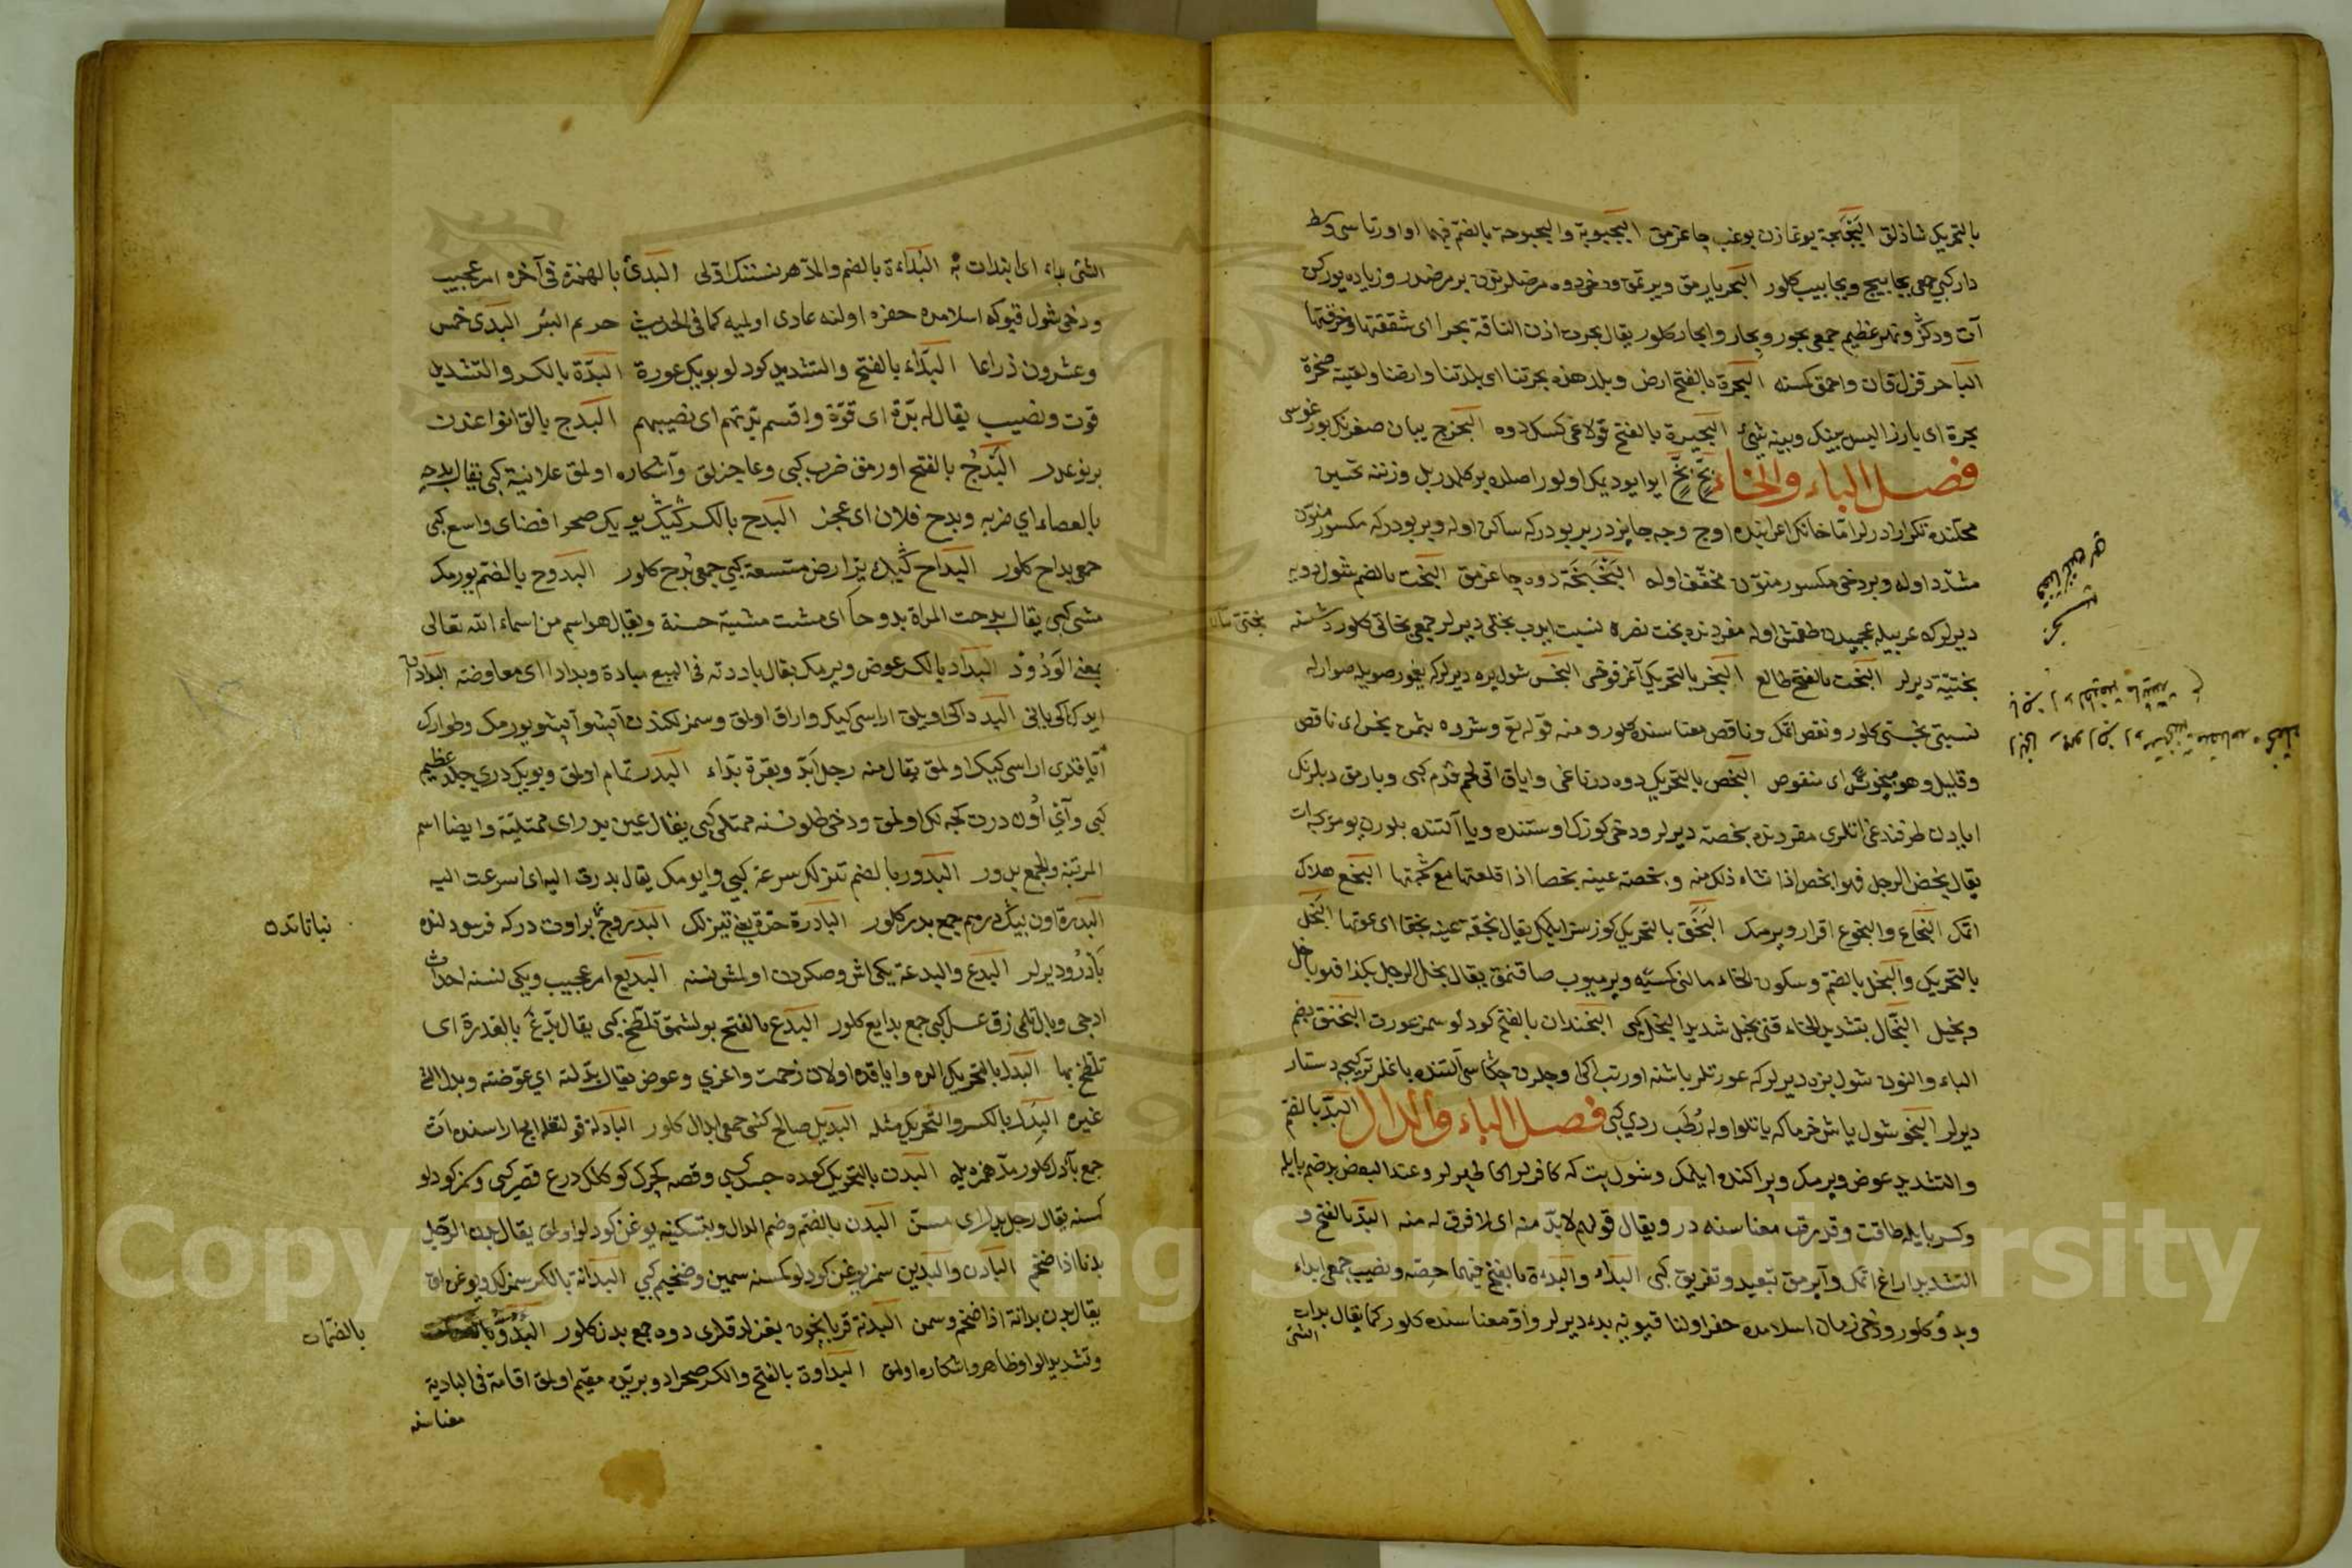 بالتحريك شاذلق البجبجة يوغازن بوغب چاغرمق البحبوبة والبحبوحة بالضم فيهما اوا اورتاسى وسط
دار كبى جمعى بحابيح وبحابيب كلور البحر يارمق ويرتمق ودخى دوه مرضلرندن بر مرضدر وزياده يوركن
آت ودكز ونهر عظيم جمعى بحور وبحار وابحار كلور يقال بحرت اذن الناقة بحرا اى شققتها وخرقتها
الباحر قزل قان واحمق كسنه البحرة بالفتح ارض وبلد هذه بحرتنا اى بلدتنا وارضنا ولقيته صخرة
بحرة اى بارزا ليس بينك وبينه شئ البحيرة بالفتح قولاغى كسك دوه البحزج يبان صغرنك بوزغوسى
فصل الباء والخاء بخ بخ ايو ايو ديمك اولور اصلده بر كلمه در بل وزننه تحسين
محلنده تكرار ايدرلر اما خانك اعرابنده اوچ وجه جايزدر برى بودركه ساكن اوله وبرى بودركه مكسور منون
مشدد اوله وبر دخى مكسور منون مخفف اوله البخبخة دوه چاغرمق البخت بالضم شول دوه
ديرلركه عربيله عجميدن طقمش اوله مفردنده بخت نصره نسبت ايدب بختى ديرلر جمعى بخاتى كلور دشنه
بختية ديرلر البخت بالفتح طالع البخر بالتحريك آغز قوخسى البخس شول يره ديرلركه يغمور صويله صوارله
نسبتى بخستى كلور ونقص اتمك وناقص معناسنده كلور ومنه قوله تع وشروه بثمن بخس اى ناقص
وقليل وهو مبخوس اى منقوص البخص بالتحريك دوه درناغى واياق اتى لحم قدم كبى وبارمق ديلرنك
ايادن طرفنده غى اتلرى مفردنده بخصة ديرلر ودخى كوزك اوستنده ويا آلتنده بلورن يومرجه ات
يقال بخص الرجل فهو ابخص اذا نتاء ذلك منه وبخصت عينه بخصا اذا قلعتها مع شحمتها البخع هلاك
اتمك البخاع والبخوع اقرار ويرمك البخق بالتحريك كوز سز ايلمك يقال بخقت عينه بخقا اى عورتها البخل
بالتحريك والبخل بالضم وسكون الخاء مالنى كسيه ويرميوب صاقنمق يقال بخل الرجل بكذا فهو باخل
وبخيل البخال بتشديد الخاء قتى بخيل شديد البخل كبى البخندان بالفتح كودلو سمز عورت البخنق بضم
الباء والنون شول بزه ديرلركه عورتلر باشنه اورتب اكى وجلرن چكاسى آلتنده باغلر تركيجه دستار
ديرلر البخو شول ياش خرماكه ياتلو اوله رطب ردي كبى فصل الباء والدال البد بالضم
والتشديد عوض ويرمك وپراكنده ايلمك وشول بت كه كافرلر اكا طپرلر وعند البعض بد ضم بايله
وكسر بايله طاقت وقدرت معناسنه در ويقال قولهم لا بد منه اى لا فرق له منه البد بالفتح و
التشديد اراغ اتمك وآيرمق تبعيد وتفريق كبى البداء والبدءة بالفتح فيهما حصه ونصيب جمعى ابداء
وبدؤ كلور ودخى زمان اسلامده حفر اولنان قيويه بدء ديرلر واو معناسنده كلور كما يقال بدات
الشئ
الشئ بداء اى ابتدات به البداءة بالضم والمد هر نسننك اولى البدئ بالهمزة فى آخره امر عجيب
ودخى شول قيوكه اسلامده حفره اولنه عادى اولميه كما فى الحديث حريم البئر البدى خمس
وعشرون ذراعا البداء بالفتح والتشديد كودلو بويك عورة البدة بالكسر والتشديد
قوت ونصيب يقال له بدة اى قوة واقسم بدتهم اى نصيبهم البدج بالق انواعندن
بر نوعدر البدح بالفتح اورمق ضرب كبى وعاجزلق وآشكاره اولمق علانية كبى يقال بدحه
بالعصاء اي ضربه وبدح فلان اى عجز البدح بالكسر كيك يو يك صحرا فضاى واسع كبى
جمعى بداح كلور البداح كيك يز ارض متسعة كبى جمعى بدح كلور البدوح بالضم يورمك
مشى كبى يقال بدحت المراة بدوحا اى مشت مشية حسنة ويقال هو اسم من اسماء الله تعالى
بمعنى الودود البداد بالكسر عوض ويرمك يقال باددته فى البيع مبادة وبدادا اى معاوضته
ايرك اكى يانى البدد اكى اويلق اراسى كيك واراق اولمق وسمزلكندن آپشو آپشو يورمك وطوارك
آياقلرى اراسى كيك اولمق يقال منه رجل ابد وبقرة بداء البدر تمام اولمق وبويك دري جلد عظيم
كبى وآيى اون درت كجه لك اولمق ودخى طلو نسنه ممتلى كبى يقال عين بدر اى ممتلئة وايضا اسم
المرتبة والجمع بدور البدور بالضم تيزلك سرعة كبى وايومك يقال بدرت اليه اى اسرعت اليه
البدرة اون بيك درهم جمع بدر كلور البادرة حدة يعنى تيزلك البدروج بر اوت دركه فرسودلنده
بادرو ديرلر البدع والبدعة يكى اش وصكردن اولمش نسنه البديع امر عجيب ويكى نسنه احداث
ادجى وبال تلمى زق عسل كبى جمع بدايع كلور البدغ بالفتح بولشمق تلطخ كبى يقال بدغ بالقذرة اى
تلطخ بها البدل بالتحريك الده واياقده اولان زحمت واغري وعوض يقال بدلته اي عوضته وبدل الشئ
غيره البدل بالكسر والتحريك مثله البديل صالح كشى جمعى ابدال كلور البادلة قولتقله ايجار اسنده ات
جمع بآدل كلور مد همزه يله البدن بالتحريك كوده جسد كبى وقصه كجرك كوكلك درع قصير كبى وسمز كودلو
كسنه يقال رجل بدن اى مسن البدن بالضم وضم الدال وبتسكينه يوغن كودلو اولمق يقال بدن الرجل
بدنا اذا ضخم البادن والبدين سمز يوغن كودلو كسنه سمين وضخيم كبى البدانة بالكسر سمزلك ويوغن اق
يقال بدن بدانة اذا ضخم وسمن البدنة قربانچون بغزلدقلرى دوه جمع بدن كلور البدو
وتشديد الواو ظاهر واشكاره اولمق البداوة بالفتح والكسر صحراده وبريده مقيم اولمق اقامة فى البادية
معناسنه
نباتاتده
بالضمات
Copyright © King Saud University